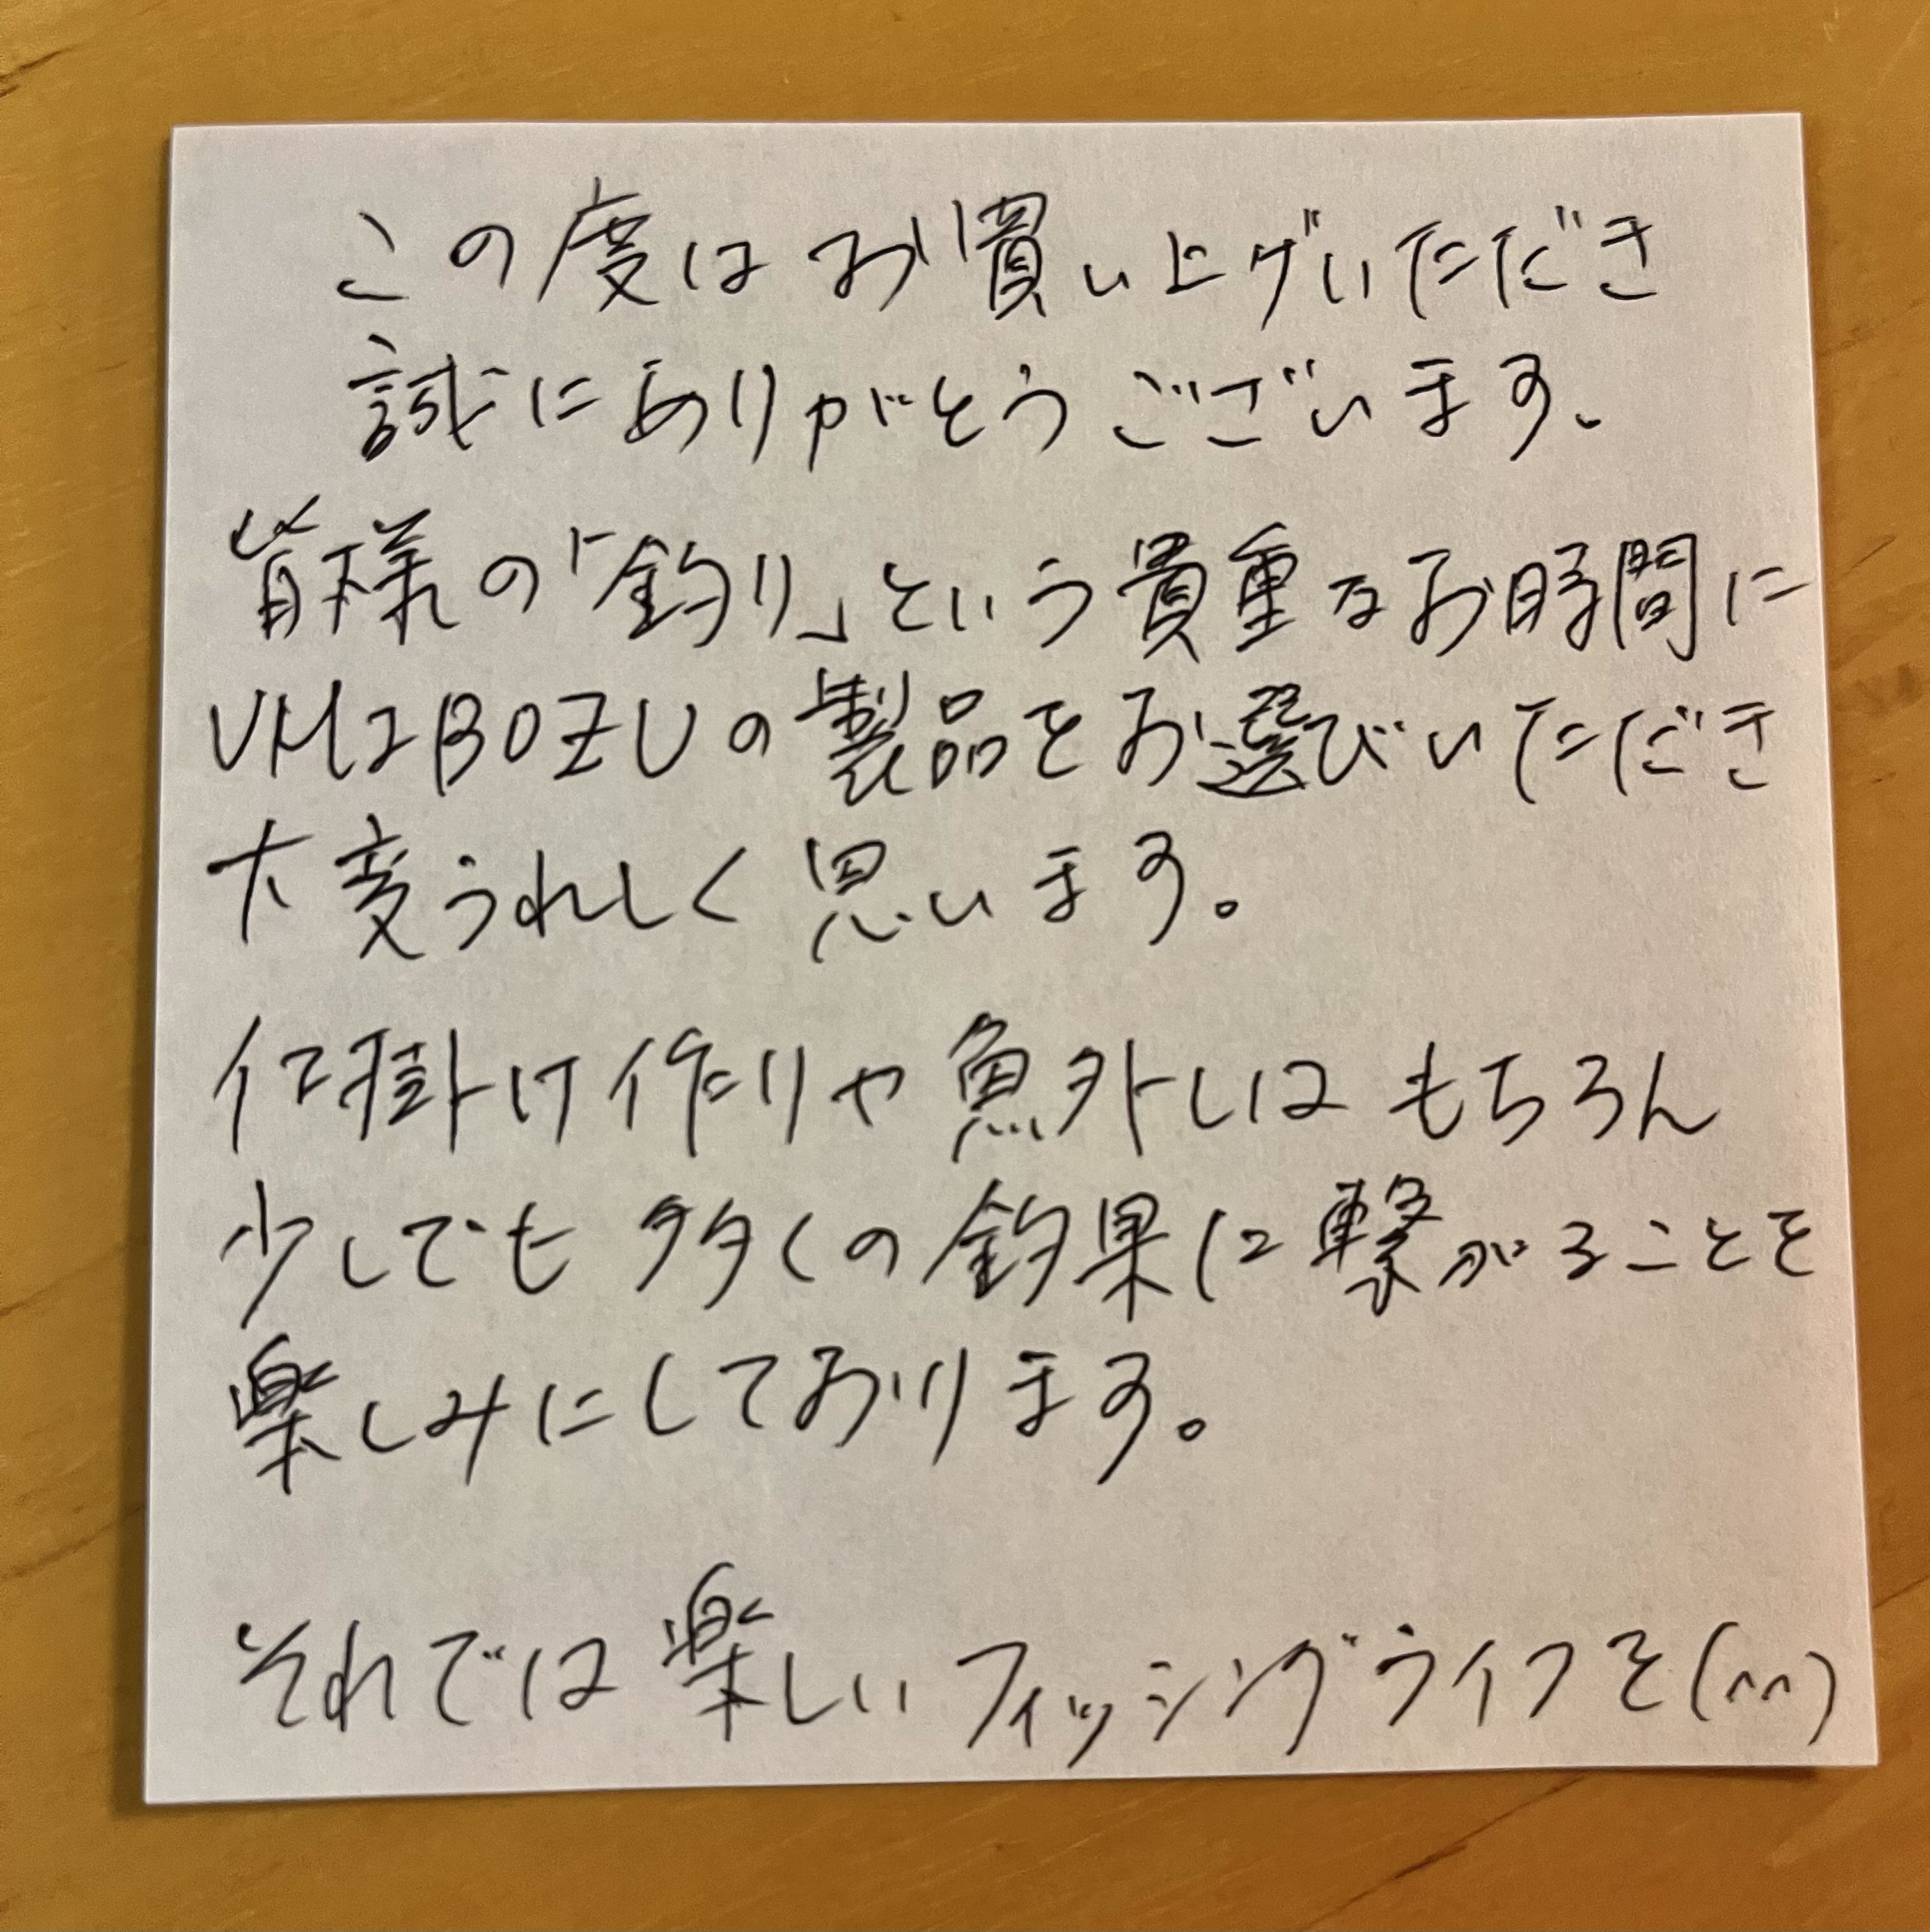 この度はお買い上げいただき
誠にありがとうございます、
皆様の「釣り」という貴重なお時間に
UMIBOZUの製品をお選びいただき
大変うれしく思います。
仕掛け作りや魚外しはもちろん
少しでも多くの釣果に繋がることを
楽しみにしております。
それでは楽しいフィッシングライフを(^^)